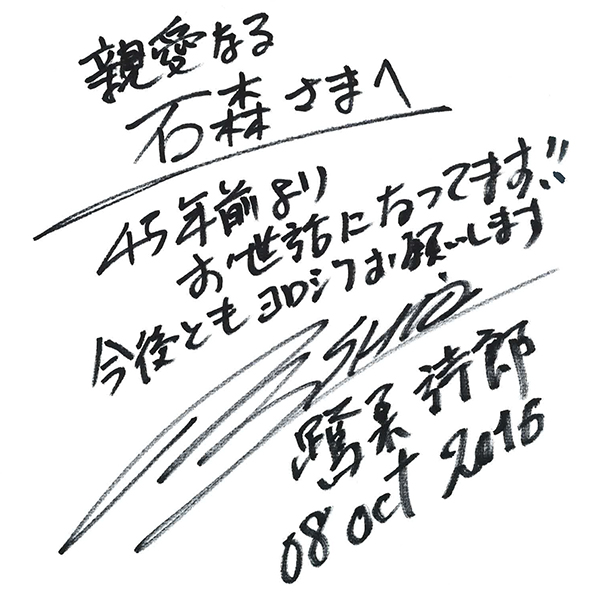 親愛なる
石森さまへ
45年前より
お世話になってます!!
今後ともヨロシクお願いします
鷺巣 詩郎
08 oct 2016